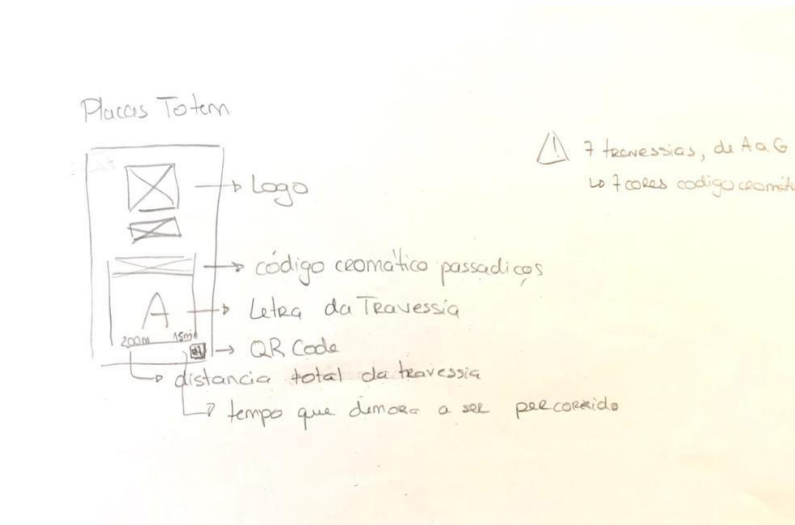 Placas Totem
⚠ 7 travessias, de A a G
↳ 7 cores codigo
→ Logo
→ código cromático passadiços
A → Letra da Travessia
200m 15m
→ QR Code
↳ distancia total da travessia
↳ tempo que demora a ser percorrido